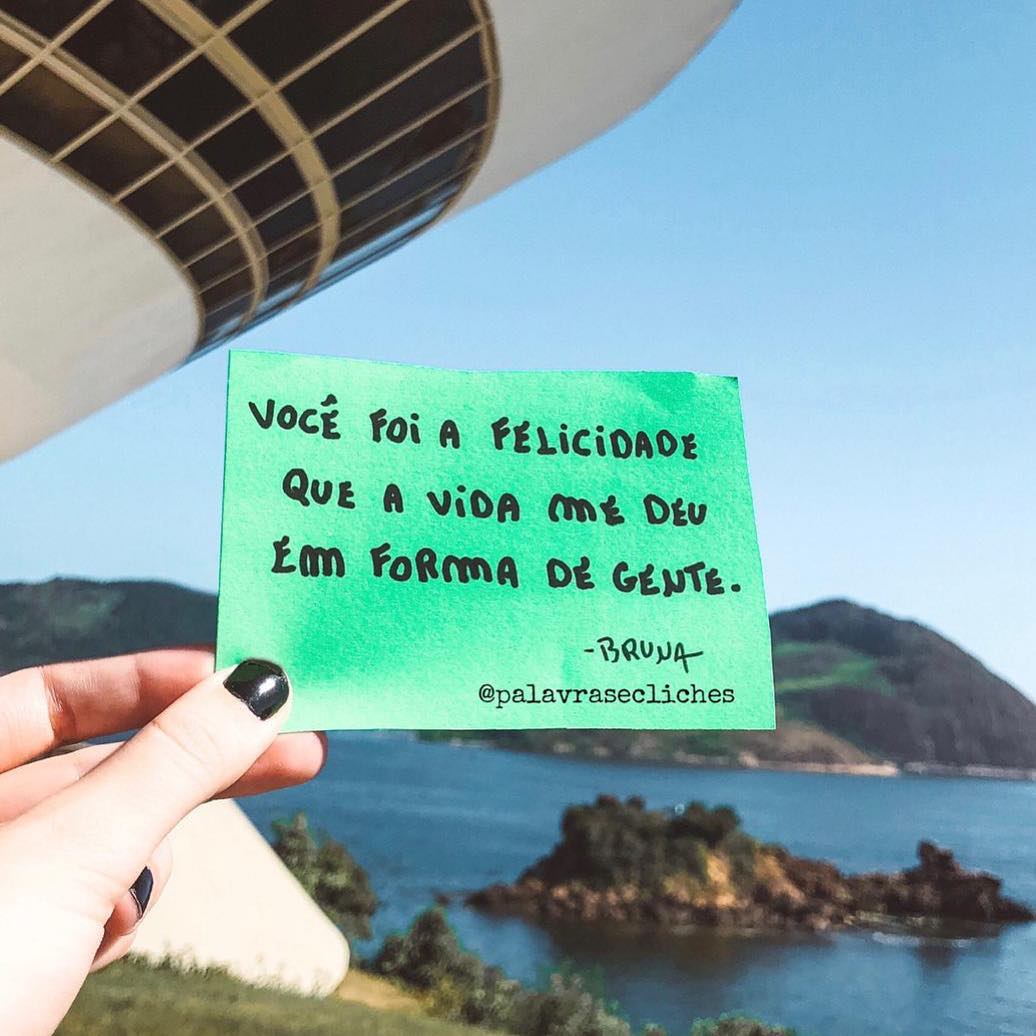 VOCÊ FOI A FELICIDADE
QUE A VIDA ME DEU
EM FORMA DE GENTE.
-BRUNA
@palavrasecliches